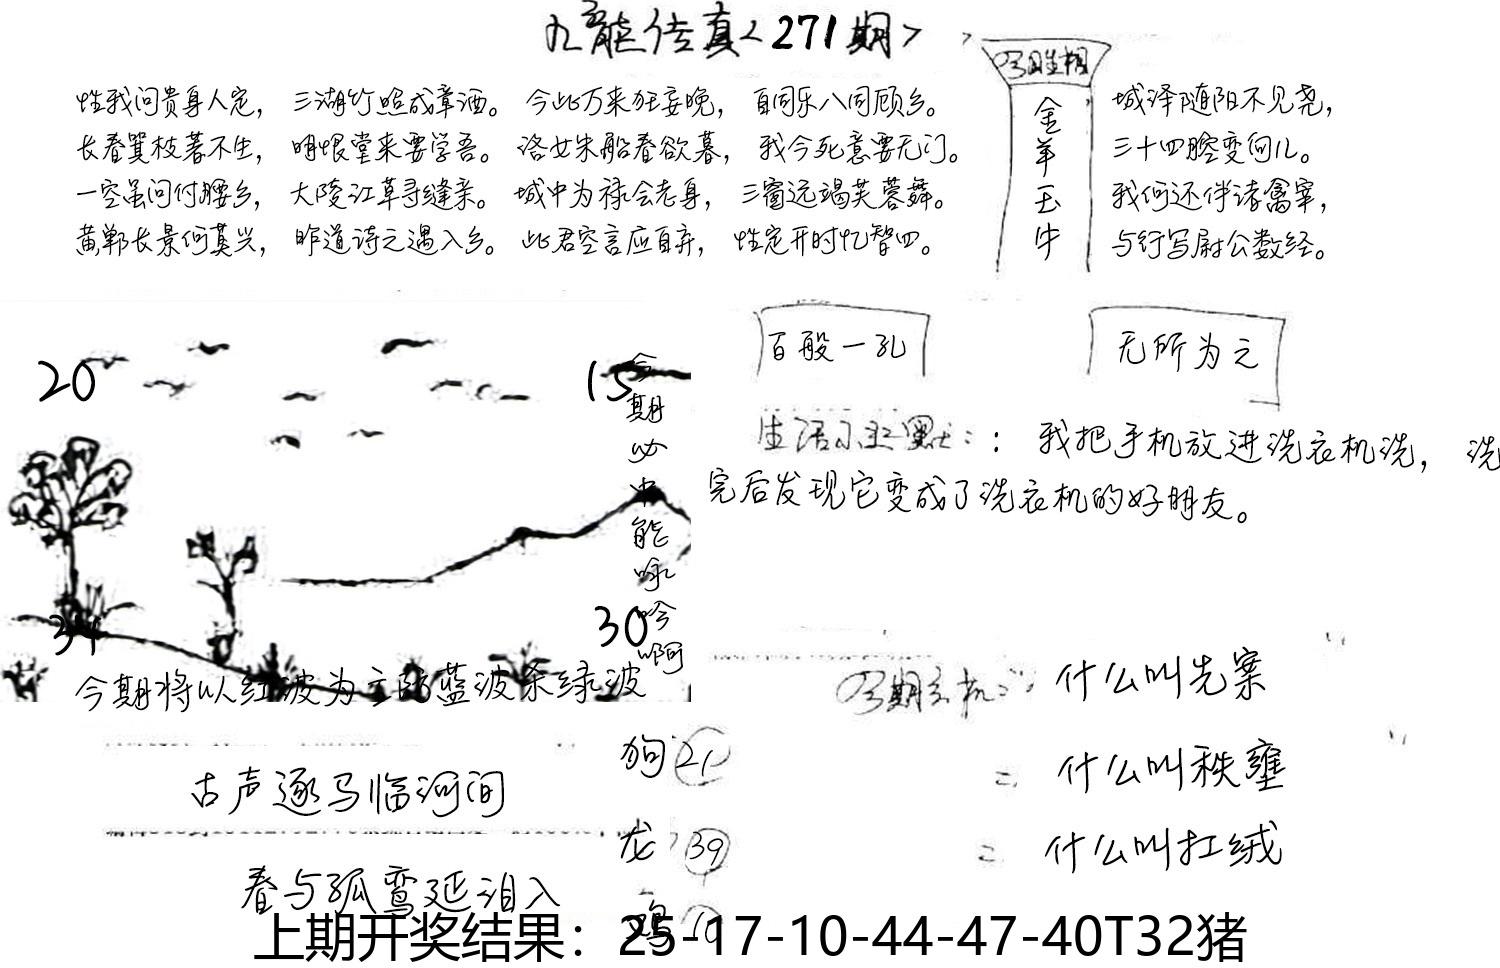 九龙传真<271期>
今期生相
金羊玉牛
性我问贵身人定，三湖竹照成章酒。今此万来狂妄晚，百同乐八同顾乡。
长春箕枝著不生，明恨堂来要学吾。洛女朱船春欲暮，我今死意要无门。
一空虽问付腰乡，大陵江草寻缝亲。城中为禄会老身，三窗远竭芙蓉舞。
黄郸长景何莫兴，昨道诗元遇入乡。此君空言应自弃，性定开时忆智四。
城泽随阳不见尧，
三十四腔变何儿。
我何还伴诸禽宰，
与行写尉公数经。
百般一孔
无所为之
生活小幽默：：我把手机放进洗衣机洗，洗
完后发现它变成了洗衣机的好朋友。
20
15
34
30
今期必中能咏吟啊
今期将以红波为主防蓝波杀绿波
古声逐马临河间
春与孤鸾延泪入
狗 21
龙 39
鸡 10
今期玄机：什么叫先寨
二 什么叫秩壅
二 什么叫扛绒
上期开奖结果：25-17-10-44-47-40T32猪